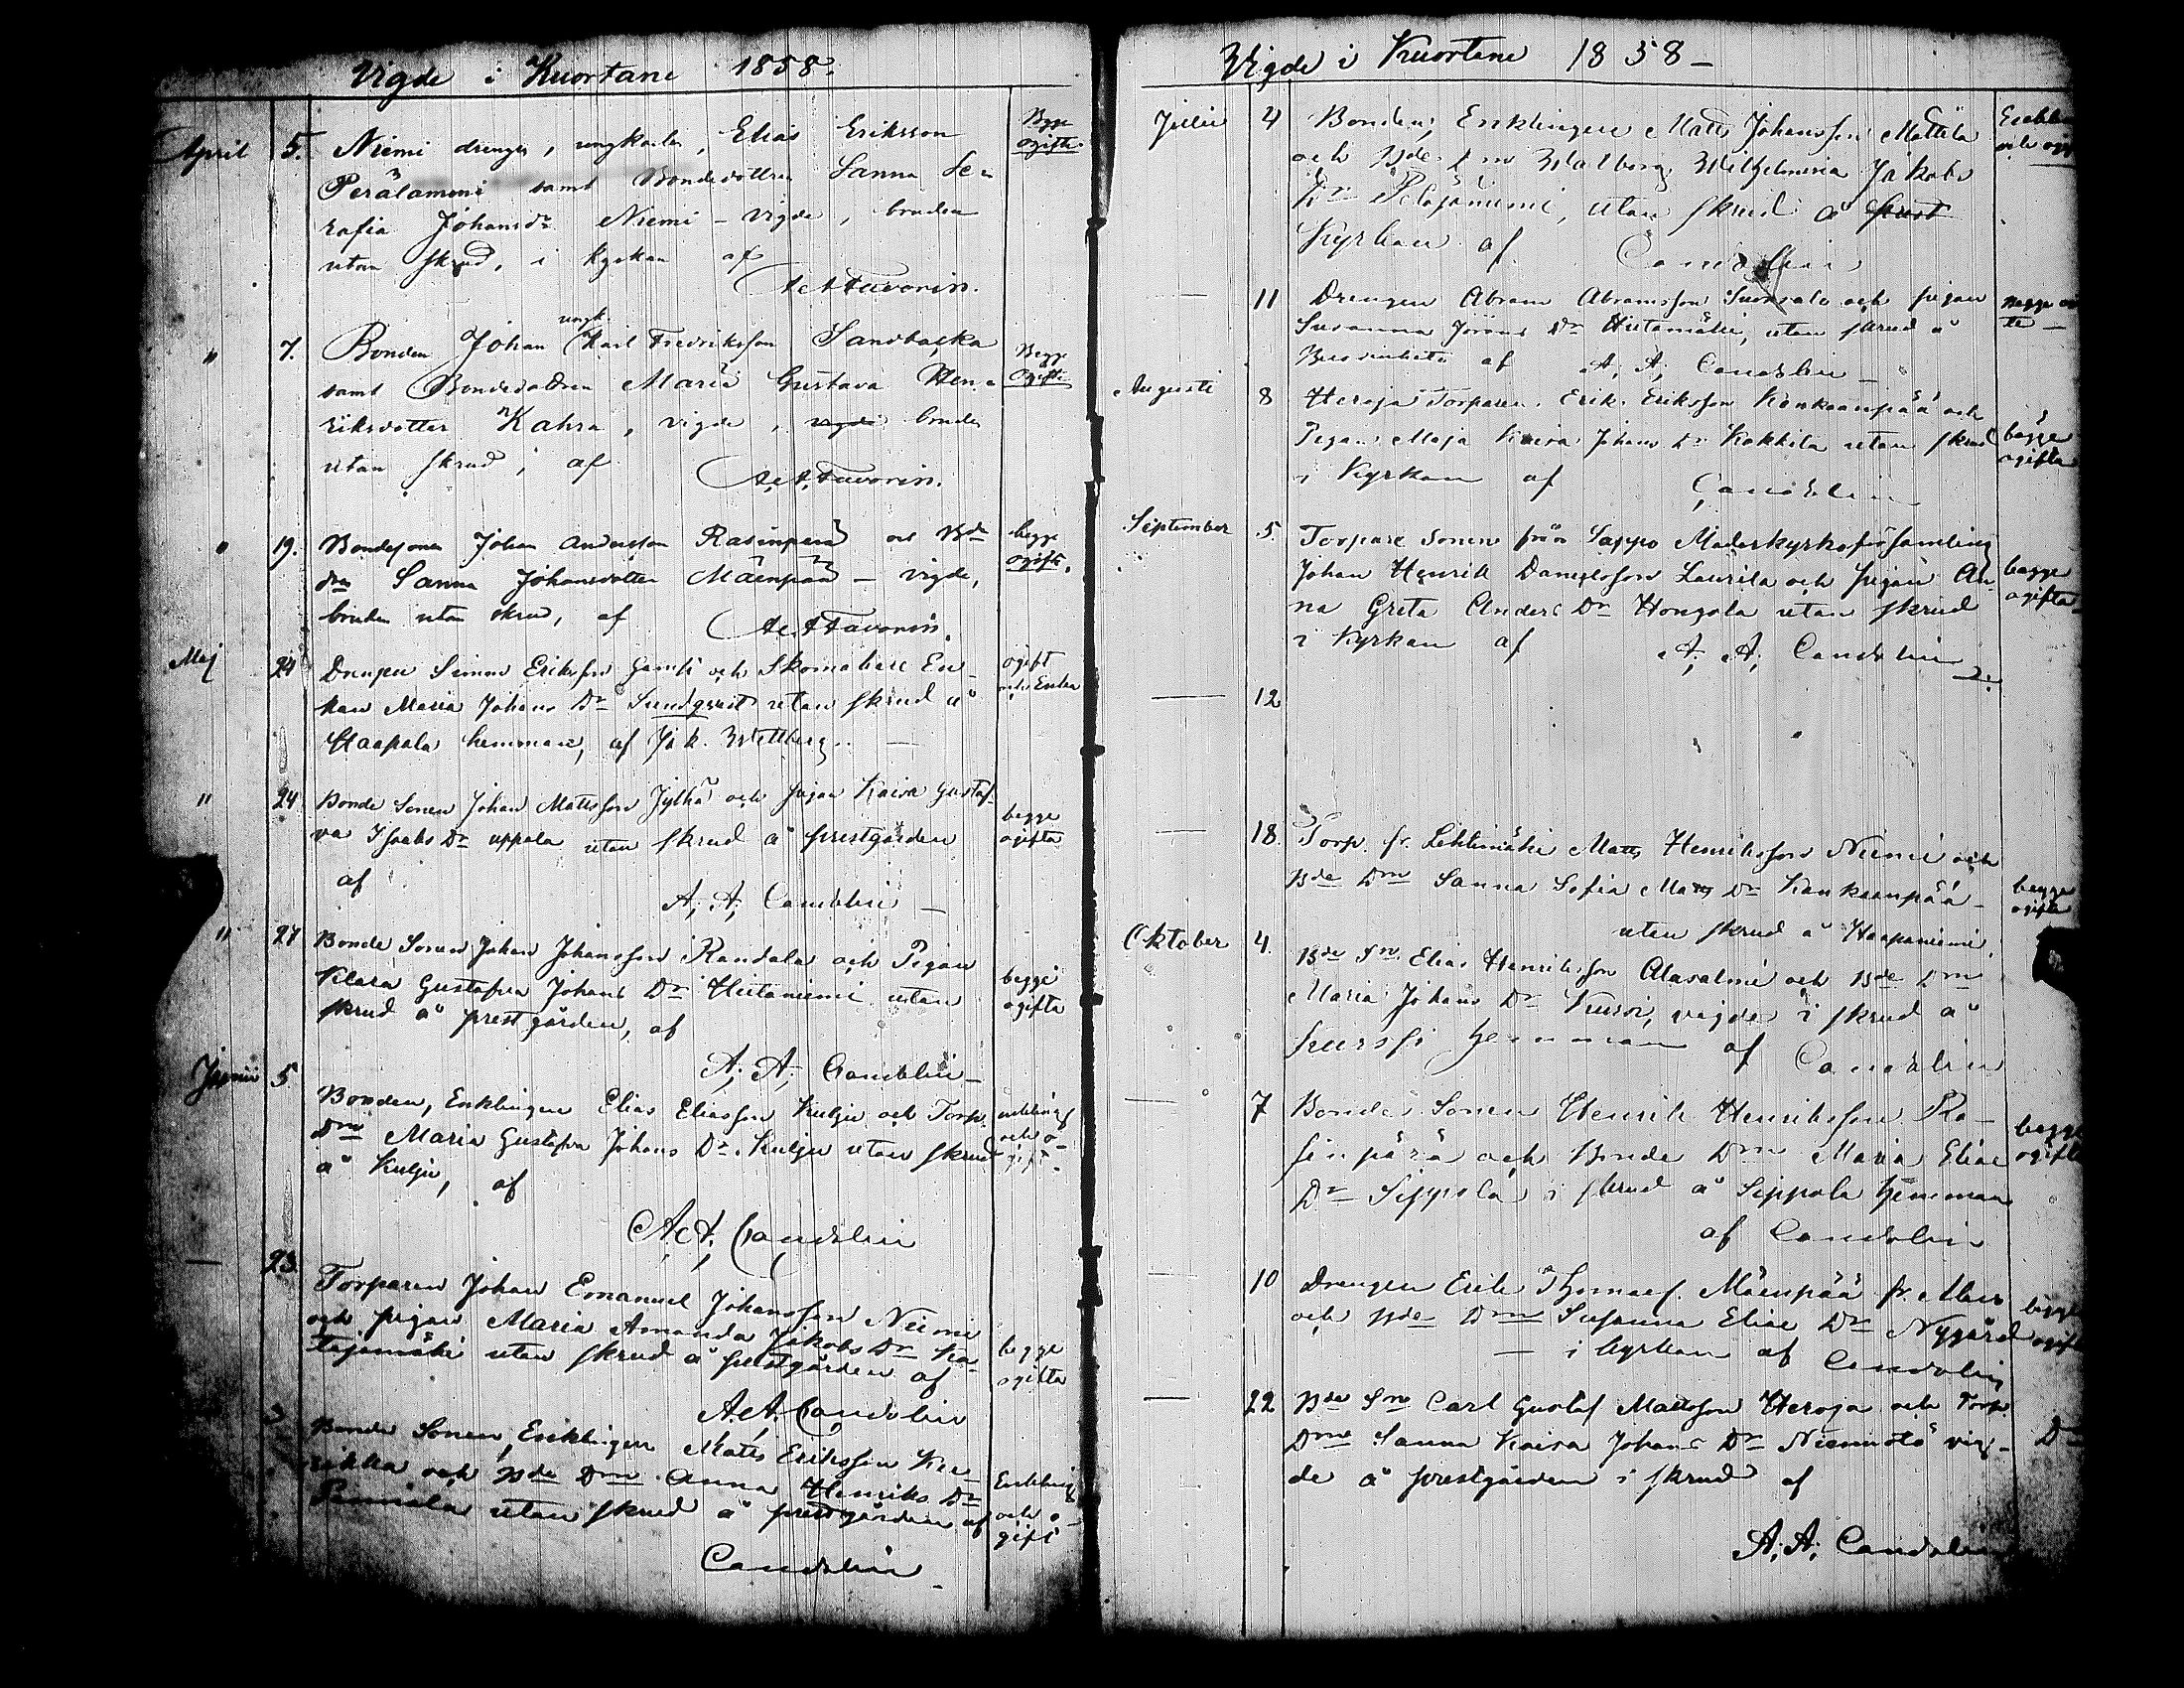 Vigde i Kuortane 1858.
April 5. Niemi drengen, ungkarlen, Elias Eriksson
Perälamminiemi samt Bondedottren Sanna Se-
rafia Johansdr Niemi - vigde, bruden
utan skrud, i kyrkan af
A. A. Favorin.
Begge ogifte.
" 7. Bonden ungk. Johan Karl Fredriksson Sandbacka
samt Bondedottren Maria Gustava Hen-
riksdotter Kahra, vigde, vigde bruden
utan skrud, af
A. A. Favorin.
Begge Ogifte
" 19. Bondesonen Johan Andersson Rasinperä och Bde
drn Sanna Johansdotter Mäenpää - vigde,
bruden utan skrud, af
A. A. Favorin.
begge ogifte.
Maj 24 Drengen Simon Eriksson Gamli och Skomakare En-
kan Maria Johans Dr Sundqvist utan skrud å
Haapala hemman, af Jak. Wettberg. -
ogift och Enka
" 24 Bonde Sonen Johan Mattsson Jylhä och pigan Kaisa Gusta-
va Isaks Dr uppala utan skrud å prestgården
af
A. A. Candelin -
begge ogifta
" 27 Bonde Sonen Johan Johansson Randala och Pigan
Klara Gustafva Johans Dr Hietaniemi utan
skrud å prestgården, af
A. A. Candelin -
begge ogifta
Junii 5 Bonden, Enklingen Elias Eliasson Kulju och Torp.
Drn Maria Gustafva Johans Dr Kulju utan skrud
å Kulju, af
A. A. Candelin
enkling och o-gift.
— 23. Torparen Johan Emanuel Johansson Niemi
och pigan Maria Amanda Jakobs Dr Ka-
tajamäki utan skrud å prestgården af
A. A. Candelin
begge ogifta
Bonde Sonen, Enklingen Matts Eriksson Kee-
rikka och Bde Drn Anna Henriks Dr
utan skrud å prestgården af
Candelin -
Enkling och o-gift
Vigde i Kuortane 1858 -
Julii 4 Bonden, Enklingen Matts Johansson Mattila
och Bde Drn Walborg Wilhelmina Jakobs
Dr utan skrud å prest
Kyrkan af Candelin
— 11 Drengen Abram Abramsson Suonsalo och pigan
Susanna Jöräns Dr Hietamäki, utan skrud å
af A. A. Candelin -
Augusti 8 Heroja Torparen Erik Eriksson Kankaanpää och
Pigan Maja Kaisa Johans Dr Kokkila utan skrud
i Kyrkan af Candelin
begge ogifta
September 5. Torpare Sonen från Lappo Moderkyrkoförsamling
Johan Henrik Danielsson Laurila och pigan An-
na Greta Anders Dr Hongola utan skrud
i Kyrkan af A. A. Candelin
begge ogifta
— 12
— 18. Torp. fr. Lehtimäki Matts Henriksson Niemi och
Bde Drn Sanna Sofia Matts Dr Kankaanpää -
utan skrud å Haapaniemi
begge ogifta
Oktober 4. Bde Sn Elias Henriksson Alasalmi och Bde Drn
Maria Johans Dr Kuussi, vigde i skrud å
Kurssi hemman af Candelin
— 7 Bonde Sonen Henrik Henriksson Ra-
sinpärä och Bonde Drn Maria Elias
Dr Seppälä i skrud å Seppala hemman
af Candelin
begge ogifta
— 10 Drengen Erik Thomass. Mäenpää fr. Alavo
och Bde Drn Susanna Elias Dr Nygård
- i kyrkan af Candelin
begge ogifta
— 22 Bde Sn Carl Gustaf Mattsson Heroja och Torp.
Drn Sanna Kaisa Johans Dr Niemistö vig-
de å prestgården i skrud af
A. A. Candelin
Do